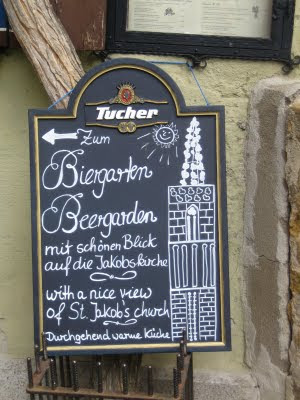 Tucher
Zum
Biergarten
Beergarden
mit schönen Blick
auf die Jakobskirche
with a nice view
of St. Jakob's church
Durchgehend warme Küche